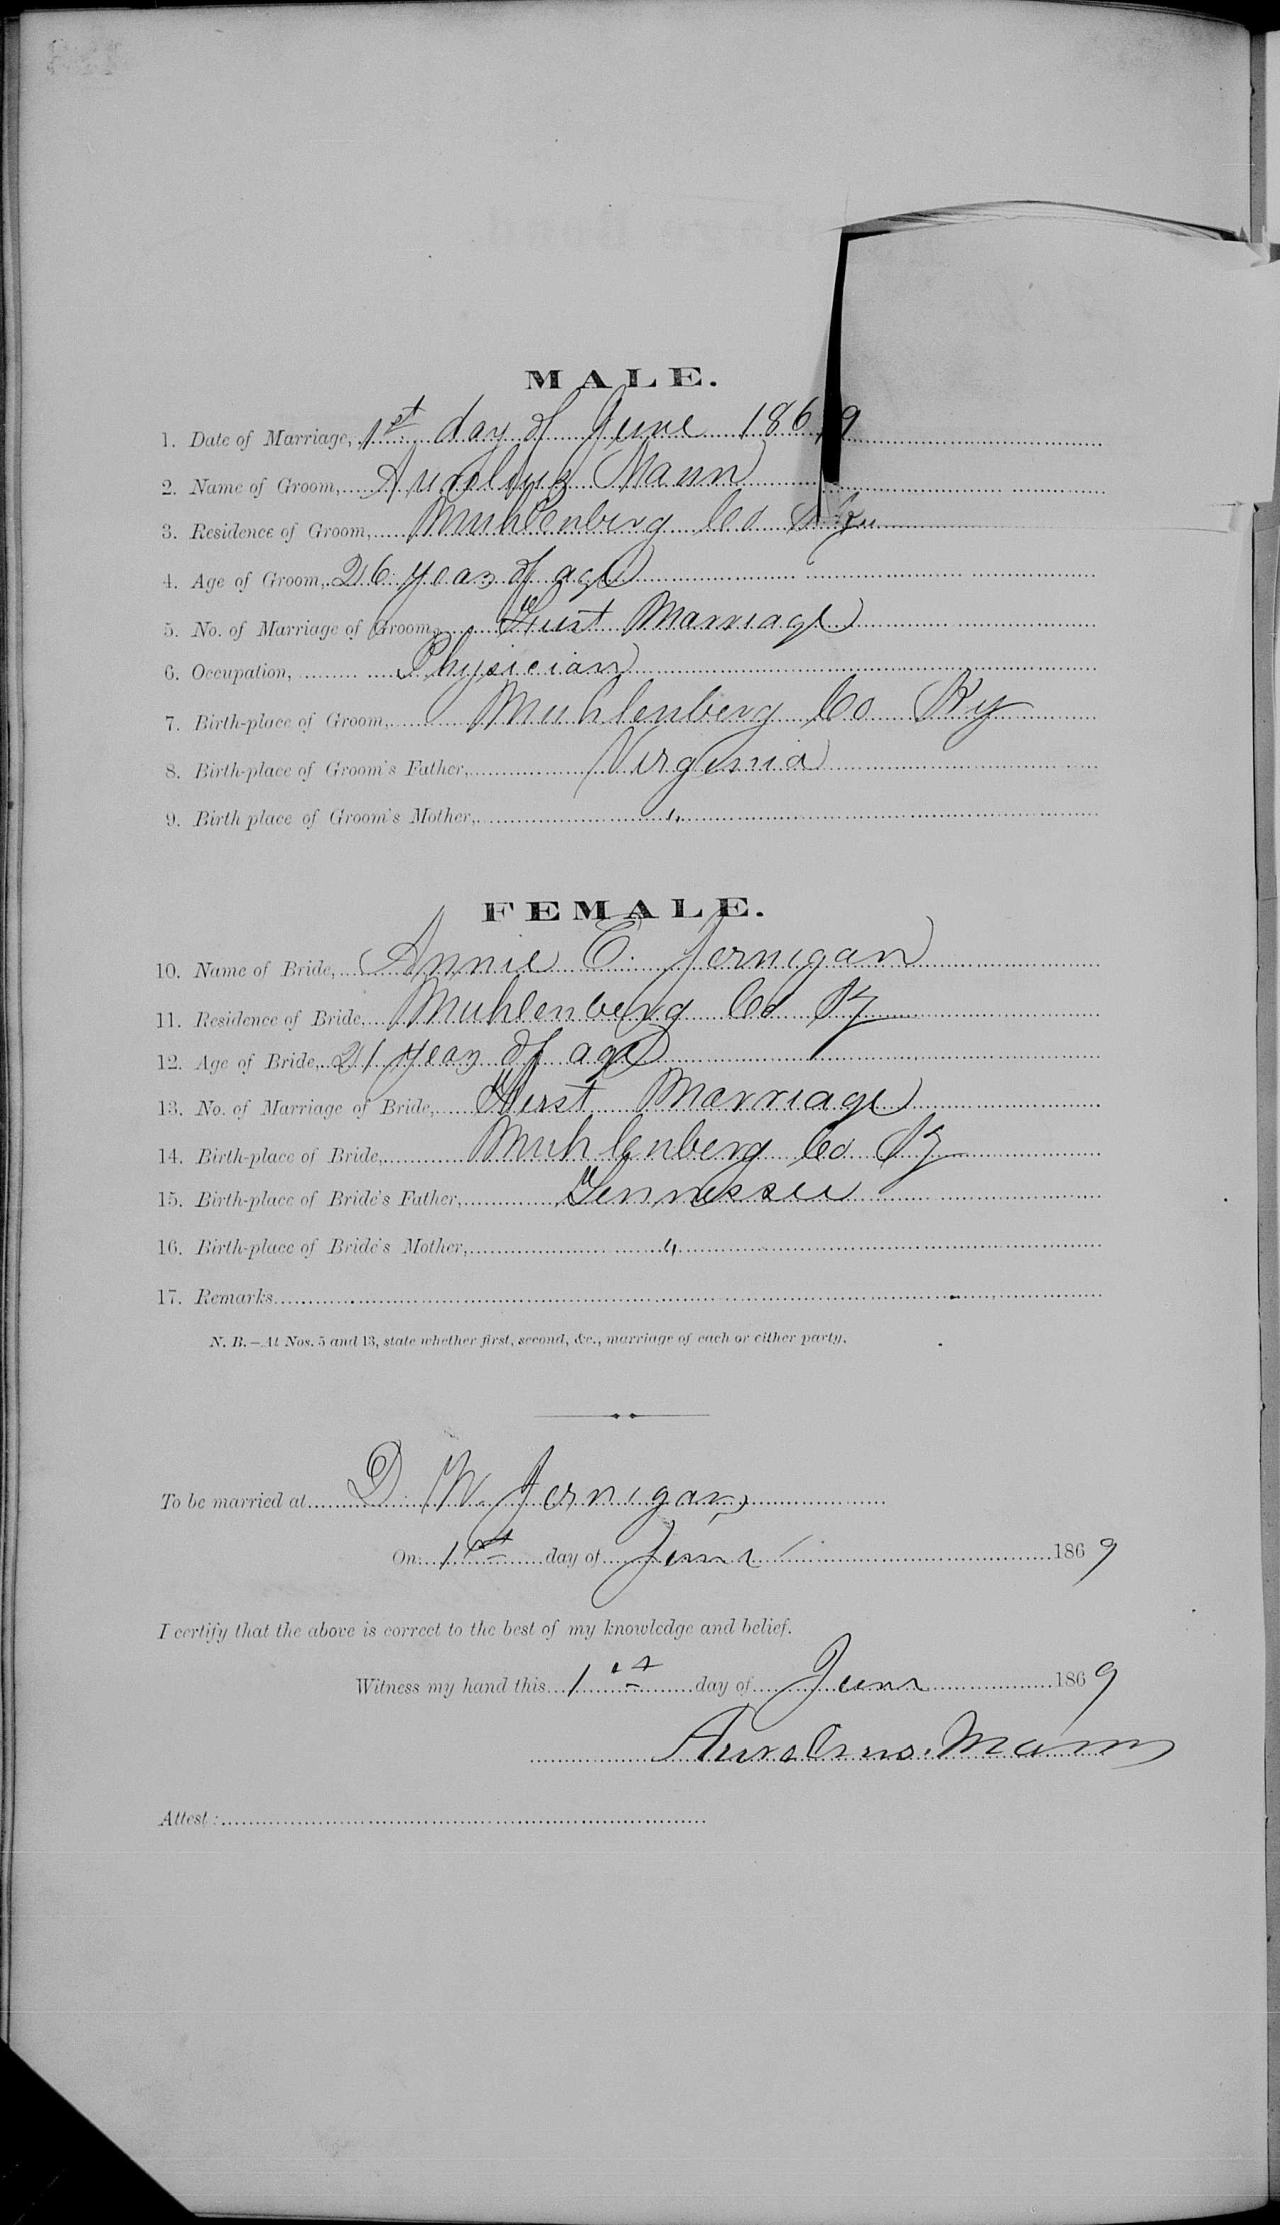 MALE.
1. Date of Marriage, 1st day of June 1869
2. Name of Groom, Aurelius Mann
3. Residence of Groom, Muhlenberg Co Ky
4. Age of Groom, 26 years of age
5. No. of Marriage of Groom, First Marriage
6. Occupation, Physician
7. Birth-place of Groom, Muhlenberg Co Ky
8. Birth-place of Groom's Father, Virginia
9. Birth place of Groom's Mother, "
FEMALE.
10. Name of Bride, Annie E. Jernigan
11. Residence of Bride Muhlenberg Co Ky
12. Age of Bride, 21 years of age
13. No. of Marriage of Bride, First Marriage
14. Birth-place of Bride, Muhlenberg Co Ky
15. Birth-place of Bride's Father, Tennessee
16. Birth-place of Bride's Mother, "
17. Remarks
N. B.—At Nos. 5 and 13, state whether first, second, &c., marriage of each or either party.
To be married at D. W. Jernigans
On 1st day of June 1869
I certify that the above is correct to the best of my knowledge and belief.
Witness my hand this 1st day of June 1869
Aurelius. Mann
Attest: